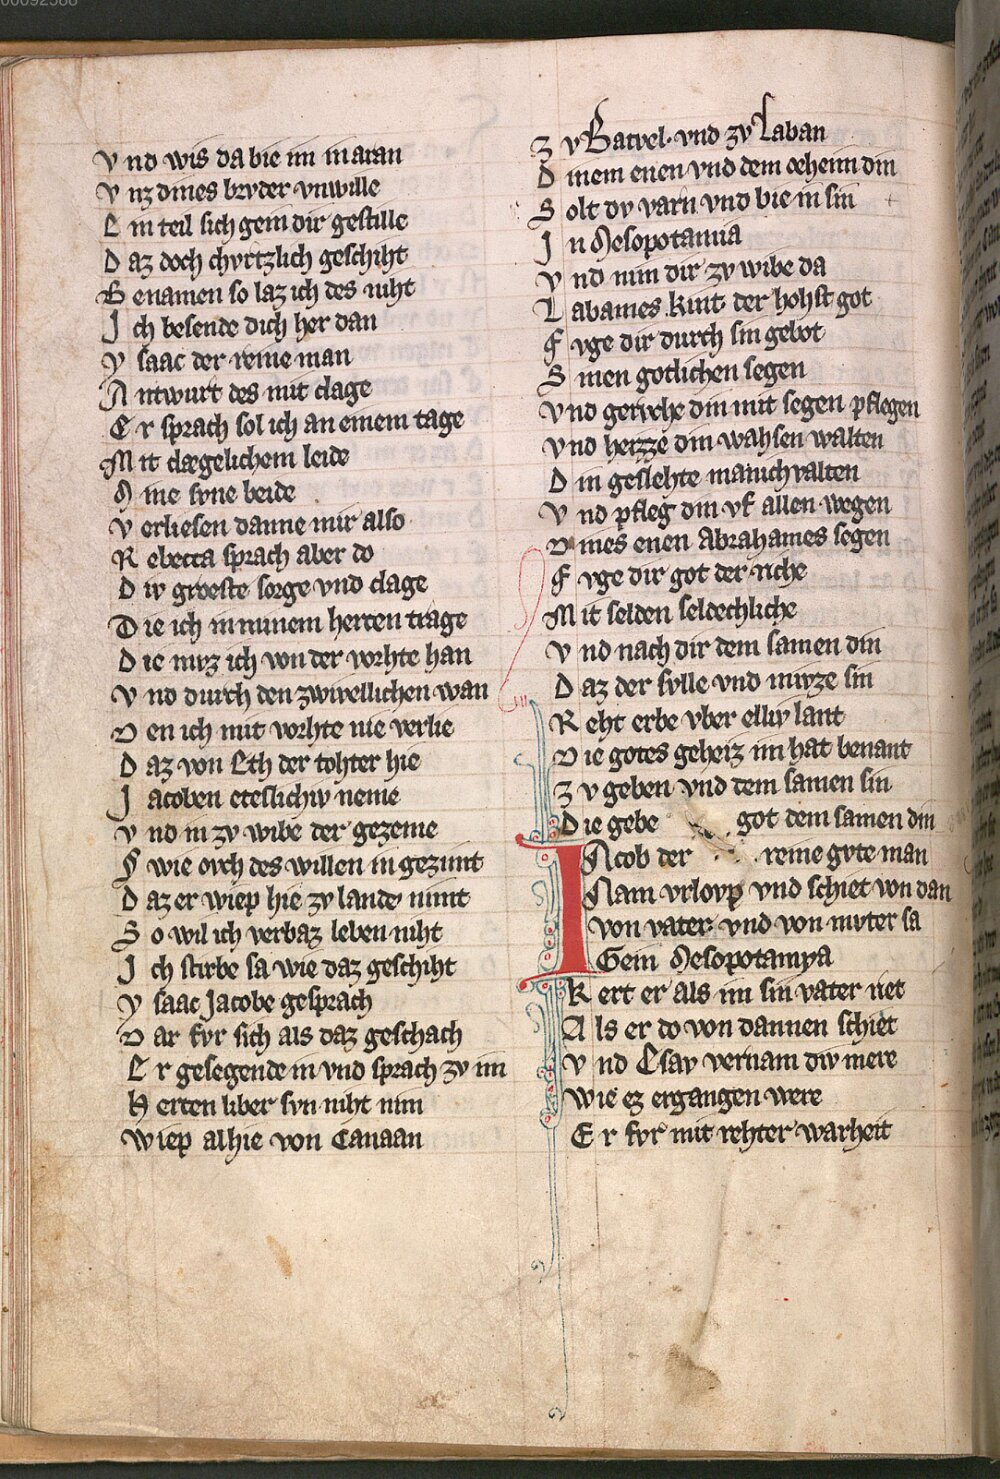 00092588
Vnd wis da bie im in aran
Vnz dines brvder vnwille
Ein teil sich gein dir gestille
Daz doch chvrtzlich geschiht
Benamen so laz ich des niht
Ich besende dich her dan
Ysaac der reine man
Antwurt des mit clage
Er sprach sol ich an einem tage
Mit clægelichem leide
Mine svne beide
Verliesen danne mir also
Rebecca sprach aber do
Div groeste sorge vnd clage
Die ich in minem hercen trage
Die mvz ich von der vorhte han
Vnd durch den zwivellichen wan
Den ich mit vorhte nie verlie
Daz von Eth der tohter hie
Jacoben eteslichiv neme
Vnd in zv wibe der gezeme
Swie ovch des willen in gezimt
Daz er wiep hie zv lande nimt
So wil ich verbaz leben niht
Ich stirbe sa wie daz geschiht
Ysaac Jacobe gesprach
Dar fvr sich als daz geschach
Er gesegende in vnd sprach zv im
Hercen liber svn niht nim
Wiep alhie von Canaan
Zv Batvel vnd zv Laban
Dinem enen vnd dem oeheim din
Solt dv varn vnd bie in sin
In Mesopotamia
Vnd nim dir zv wibe da
Labames kint der hohst got
Fvge dir durch sin gebot
Sinen gotlichen segen
Vnd gervche din mit segen pflegen
Vnd heizze din wahsen walten
Din geslehte manichvalten
Vnd pfleg din vf allen wegen
Dines enen Abrahames segen
Fvge dir got der riche
Mit selden seldechliche
Vnd nach dir dem samen din
Daz der svlle vnd mvze sin
Reht erbe vber elliv lant
Die gotes geheiz im hat benant
Zv geben vnd dem samen sin
Die gebe got dem samen din
IAcob der reine gvte man
Nam vrlovp vnd schiet von dan
Von vater vnd von mvter sa
Gein Mesopotamya
Kert er als im sin vater riet
Als er do von dannen schiet
Vnd Esav vernam div mere
Wie ez ergangen were
Er fvr mit rehter warheit